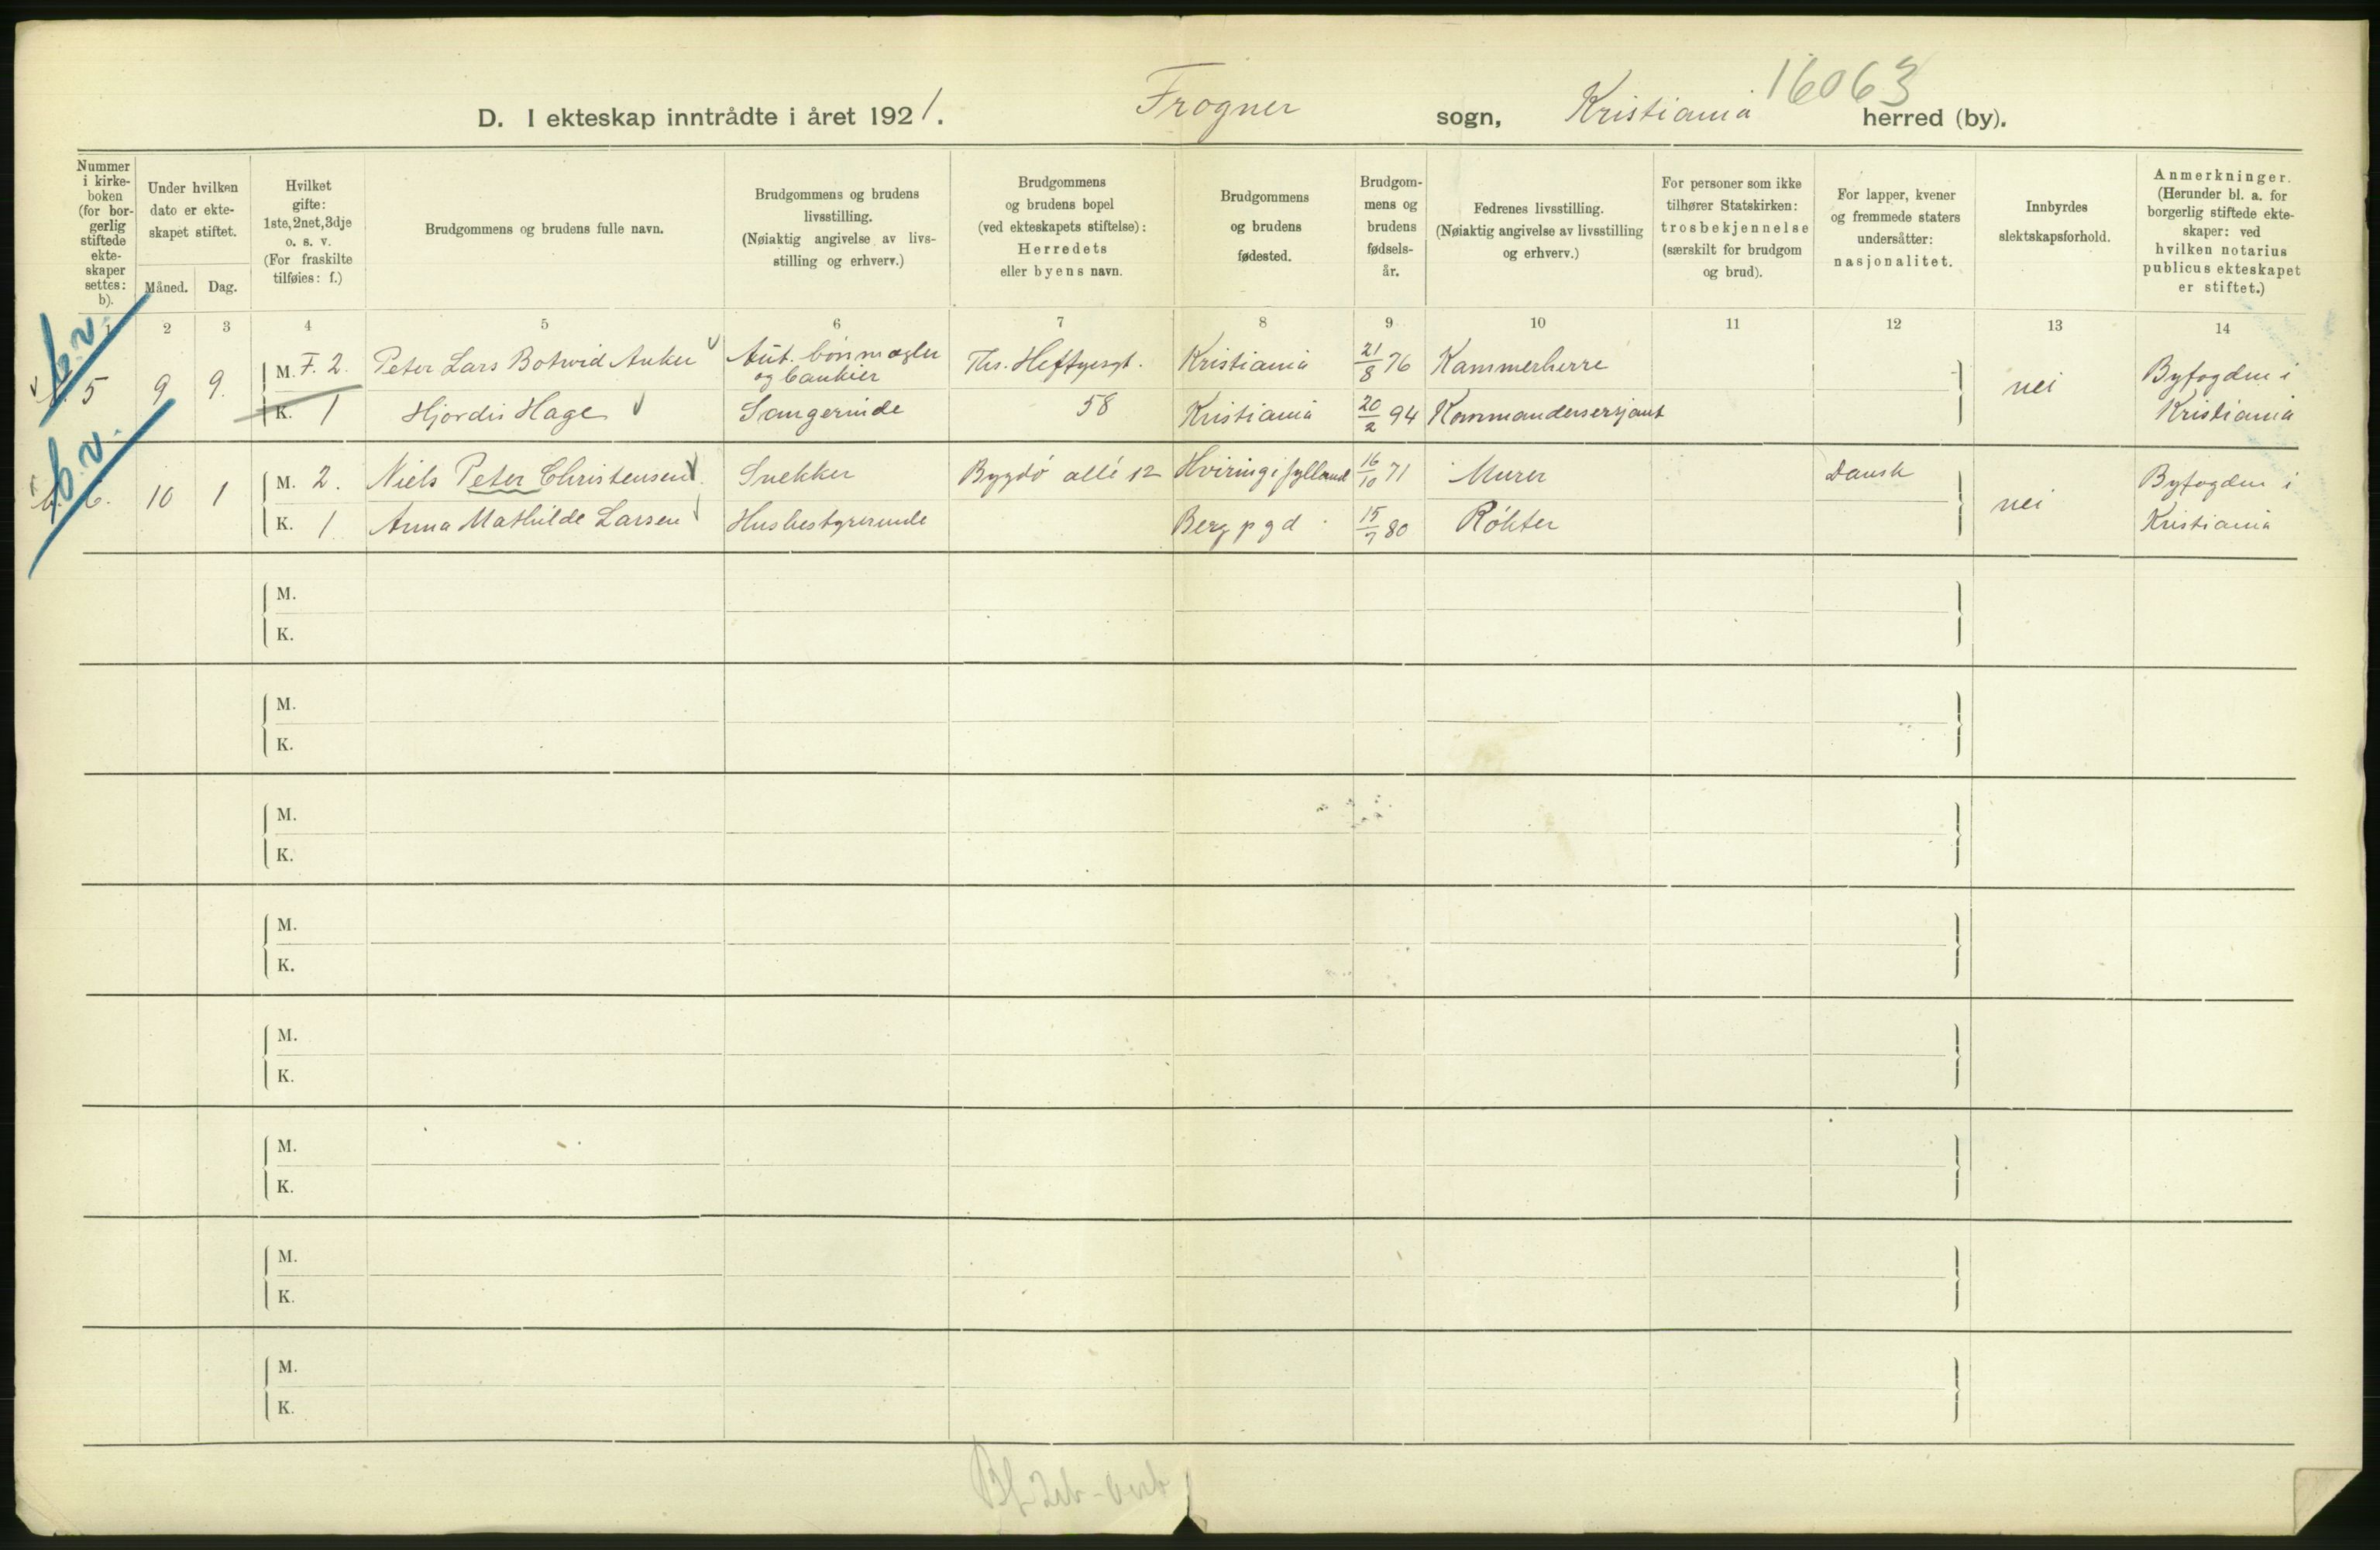 16063
D. I ekteskap inntrådte i året 1921. Frogner sogn, Kristiania herred (by).
Nummer i kirke-boken (for bor-gerlig stiftede ekte-skaper settes: b).
Under hvilken dato er ekte-skapet stiftet.
Måned. Dag.
Hvilket gifte: 1ste, 2net, 3dje o. s. v. (For fraskilte tilføies: f.)
Brudgommens og brudens fulle navn.
Brudgommens og brudens livsstilling. (Nøiaktig angivelse av livs-stilling og erhverv.)
Brudgommens og brudens bopel (ved ekteskapets stiftelse): Herredets eller byens navn.
Brudgommens og brudens fødested.
Brudgom-mens og brudens fødsels-år.
Fedrenes livsstilling. (Nøiaktig angivelse av livsstilling og erhverv.)
For personer som ikke tilhører Statskirken: trosbekjennelse (særskilt for brudgom og brud).
For lapper, kvener og fremmede staters undersåtter: nasjonalitet.
Innbyrdes slektskapsforhold.
Anmerkninger. (Herunder bl. a. for borgerlig stiftede ekte-skaper: ved hvilken notarius publicus ekteskapet er stiftet.)
1 2 3 4 5 6 7 8 9 10 11 12 13 14
b.v.
5 9 9. M. F. 2. Peter Lars Botwid Anker Aut. börsmægler og bankier Ths. Heftyesgt. Kristiania 21/8 76 Kammerherre nei Byfogden i
K. 1 Hjordis Hage Sangerinde 58 Kristiania 20/2 94 Kommandersersjant Kristiania
b.v.
b. 6. 10 1 M. 2. Niels Peter Christensen Snekker Bygdö allé 12 Hviring i Jylland 16/10 71 Murer Dansk nei Byfogden i
K. 1 Anna Mathilde Larsen Husbestyrerinde Berg pgd 15/7 80 Røkter Kristiania
M.
K.
M.
K.
M.
K.
M.
K.
M.
K.
M.
K.
M.
K.
M.
K.